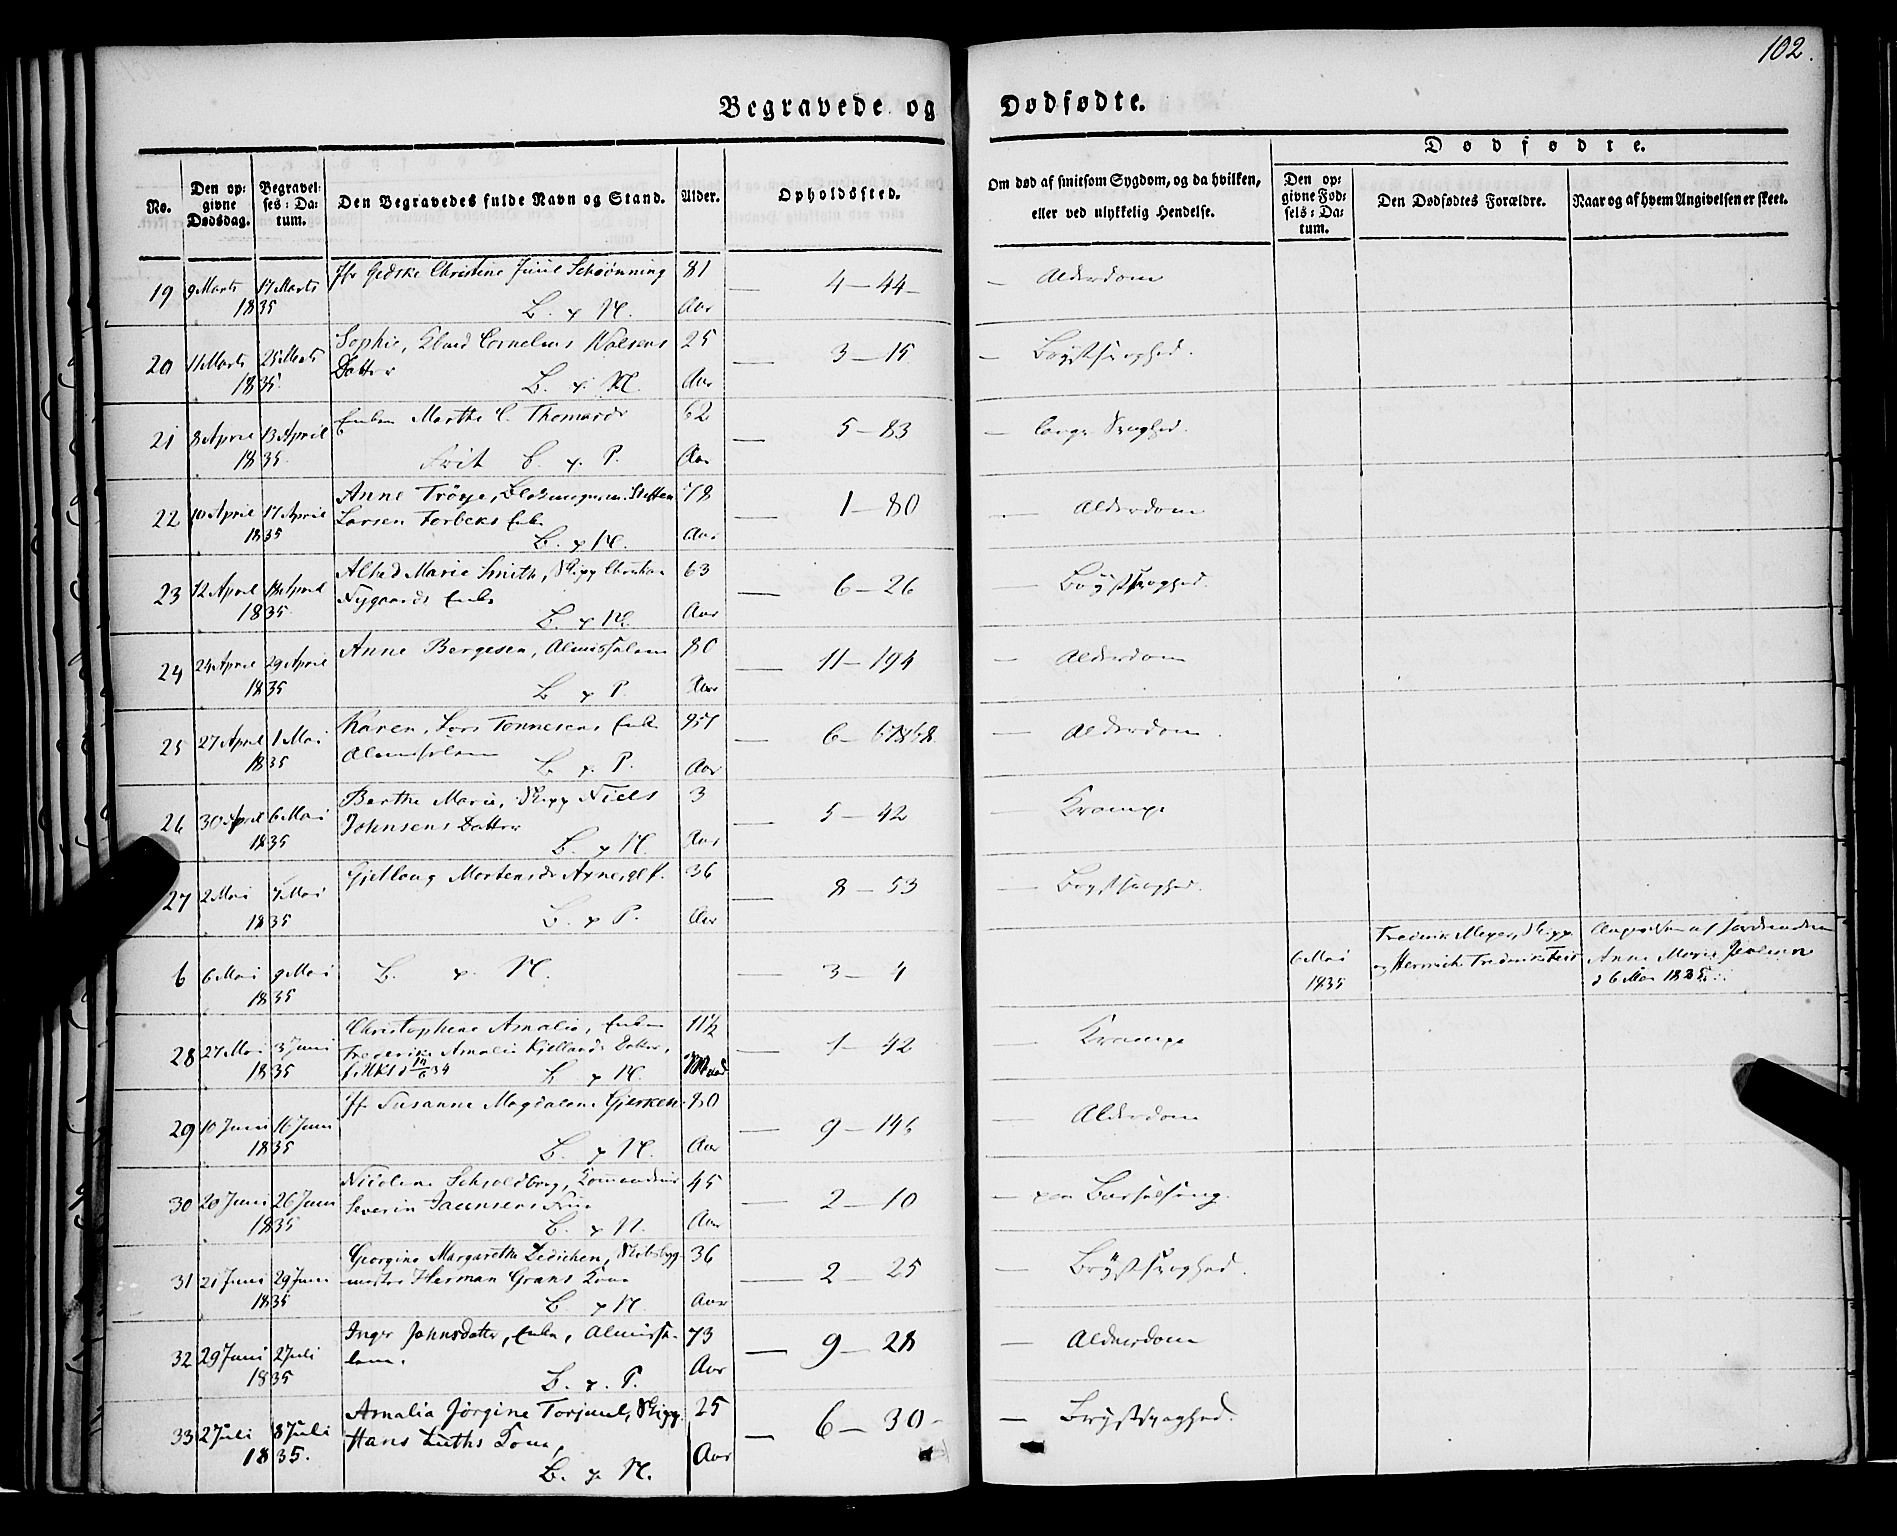 102.
Begravede og Dødfødte.
Dødfødte.
No.
Den op:
givne
Dødsdag.
Begravel:
ses: Da:
tum.
Den Begravedes fulde Navn og Stand.
Alder.
Opholdssted.
Om død af smitsom Sygdom, og da hvilken,
eller ved ulykkelig Hendelse.
Den op:
givne Fød:
sels: Da:
tum.
Den Dødfødtes Forældre.
Naar og af hvem Angivelsen er skeet.
19 9 Marts 17 Marts Jfr Gedske Christine Juul Schiønning 81 — 4 – 44 — Alderdom
1835 B. & N. Aar
20 11 Marts 25 Marts Sophie, Cornelius 25 — 3 – 15 — Brystsvaghed.
1835 Datter B. & N. Aar
21 8 April 13 April Enken Marthe C. Thomasdr 62 — 5 – 83 — lang Svaghed.
1835 Frit B. & P. Aar
22 10 April 17 April Anne Trøye, Steffen 78 — 1 – 80 — Alderdom
1835 Larsen Torbeks Enke B. & N. Aar
23 12 April 18 April Marie Smith, Skipp Christian 63 — 6 – 26 — Brystsvaghed.
1835 Nygaards Enke B. & N. Aar
24 24 April 29 April Anne Bergesen, Almisselem 80 — 11 – 194 — Alderdom
1835 B. & P. Aar
25 27 April 1 Mai Karen, Lars Tonnesens Enke — 6 – — Alderdom.
1835 Almisselem B. & P. Aar
26 30 April 6 Mai Berthe Marie, Skipp Niels 3 — 5 – 42 — Krampe
1835 Johnsens Datter B. & N. Aar
27 2 Mai 7 Mai Mortensdr 36 — 8 – 53 — Brystsvaghed.
1835 B. & P. Aar
6 6 Mai 9 Mai B. & N. — 3 – 4 6 Mai Frederik Meyer, Skipp af Jordmoderen
1835 1835 og Anne Marie
d 6 Mai 1835
28 27 Mai 3 Juni Christophine Amalia, Enken 11½ — 1 – 42 — Krampe
1835 Frederikke Amalia Kiellands Datter, Maad
B. & N.
29 10 Juni 16 Juni Jfr Susanne Magdalene Gjerken 80 — 9 – 146 — Alderdom
1835 B. & N. Aar
30 20 Juni 26 Juni Nicoline Schioldborg, 45 — 2 – 10 — paa Barselseng.
1835 Severin Jaunsens Frue B. & N. Aar
31 21 Juni 29 Juni Georgine Margarethe Dedichen, Skibsbyg- 36 — 2 – 25 — Brystsvaghed.
1835 mester Herman Grans Kone B. & N. Aar
32 29 Juni 2 Juli Inger Johnsdatter, Enke, Almisse- 73 — 9 – 28 — Alderdom
1835 lem. B. & P. Aar
33 2 Juli 8 Juli Amalia Jørgine Torjusel, Skipp. 25 — 6 – 30 — Brystsvaghed.
1835. Hans Luths Kone, B. & N. Aar